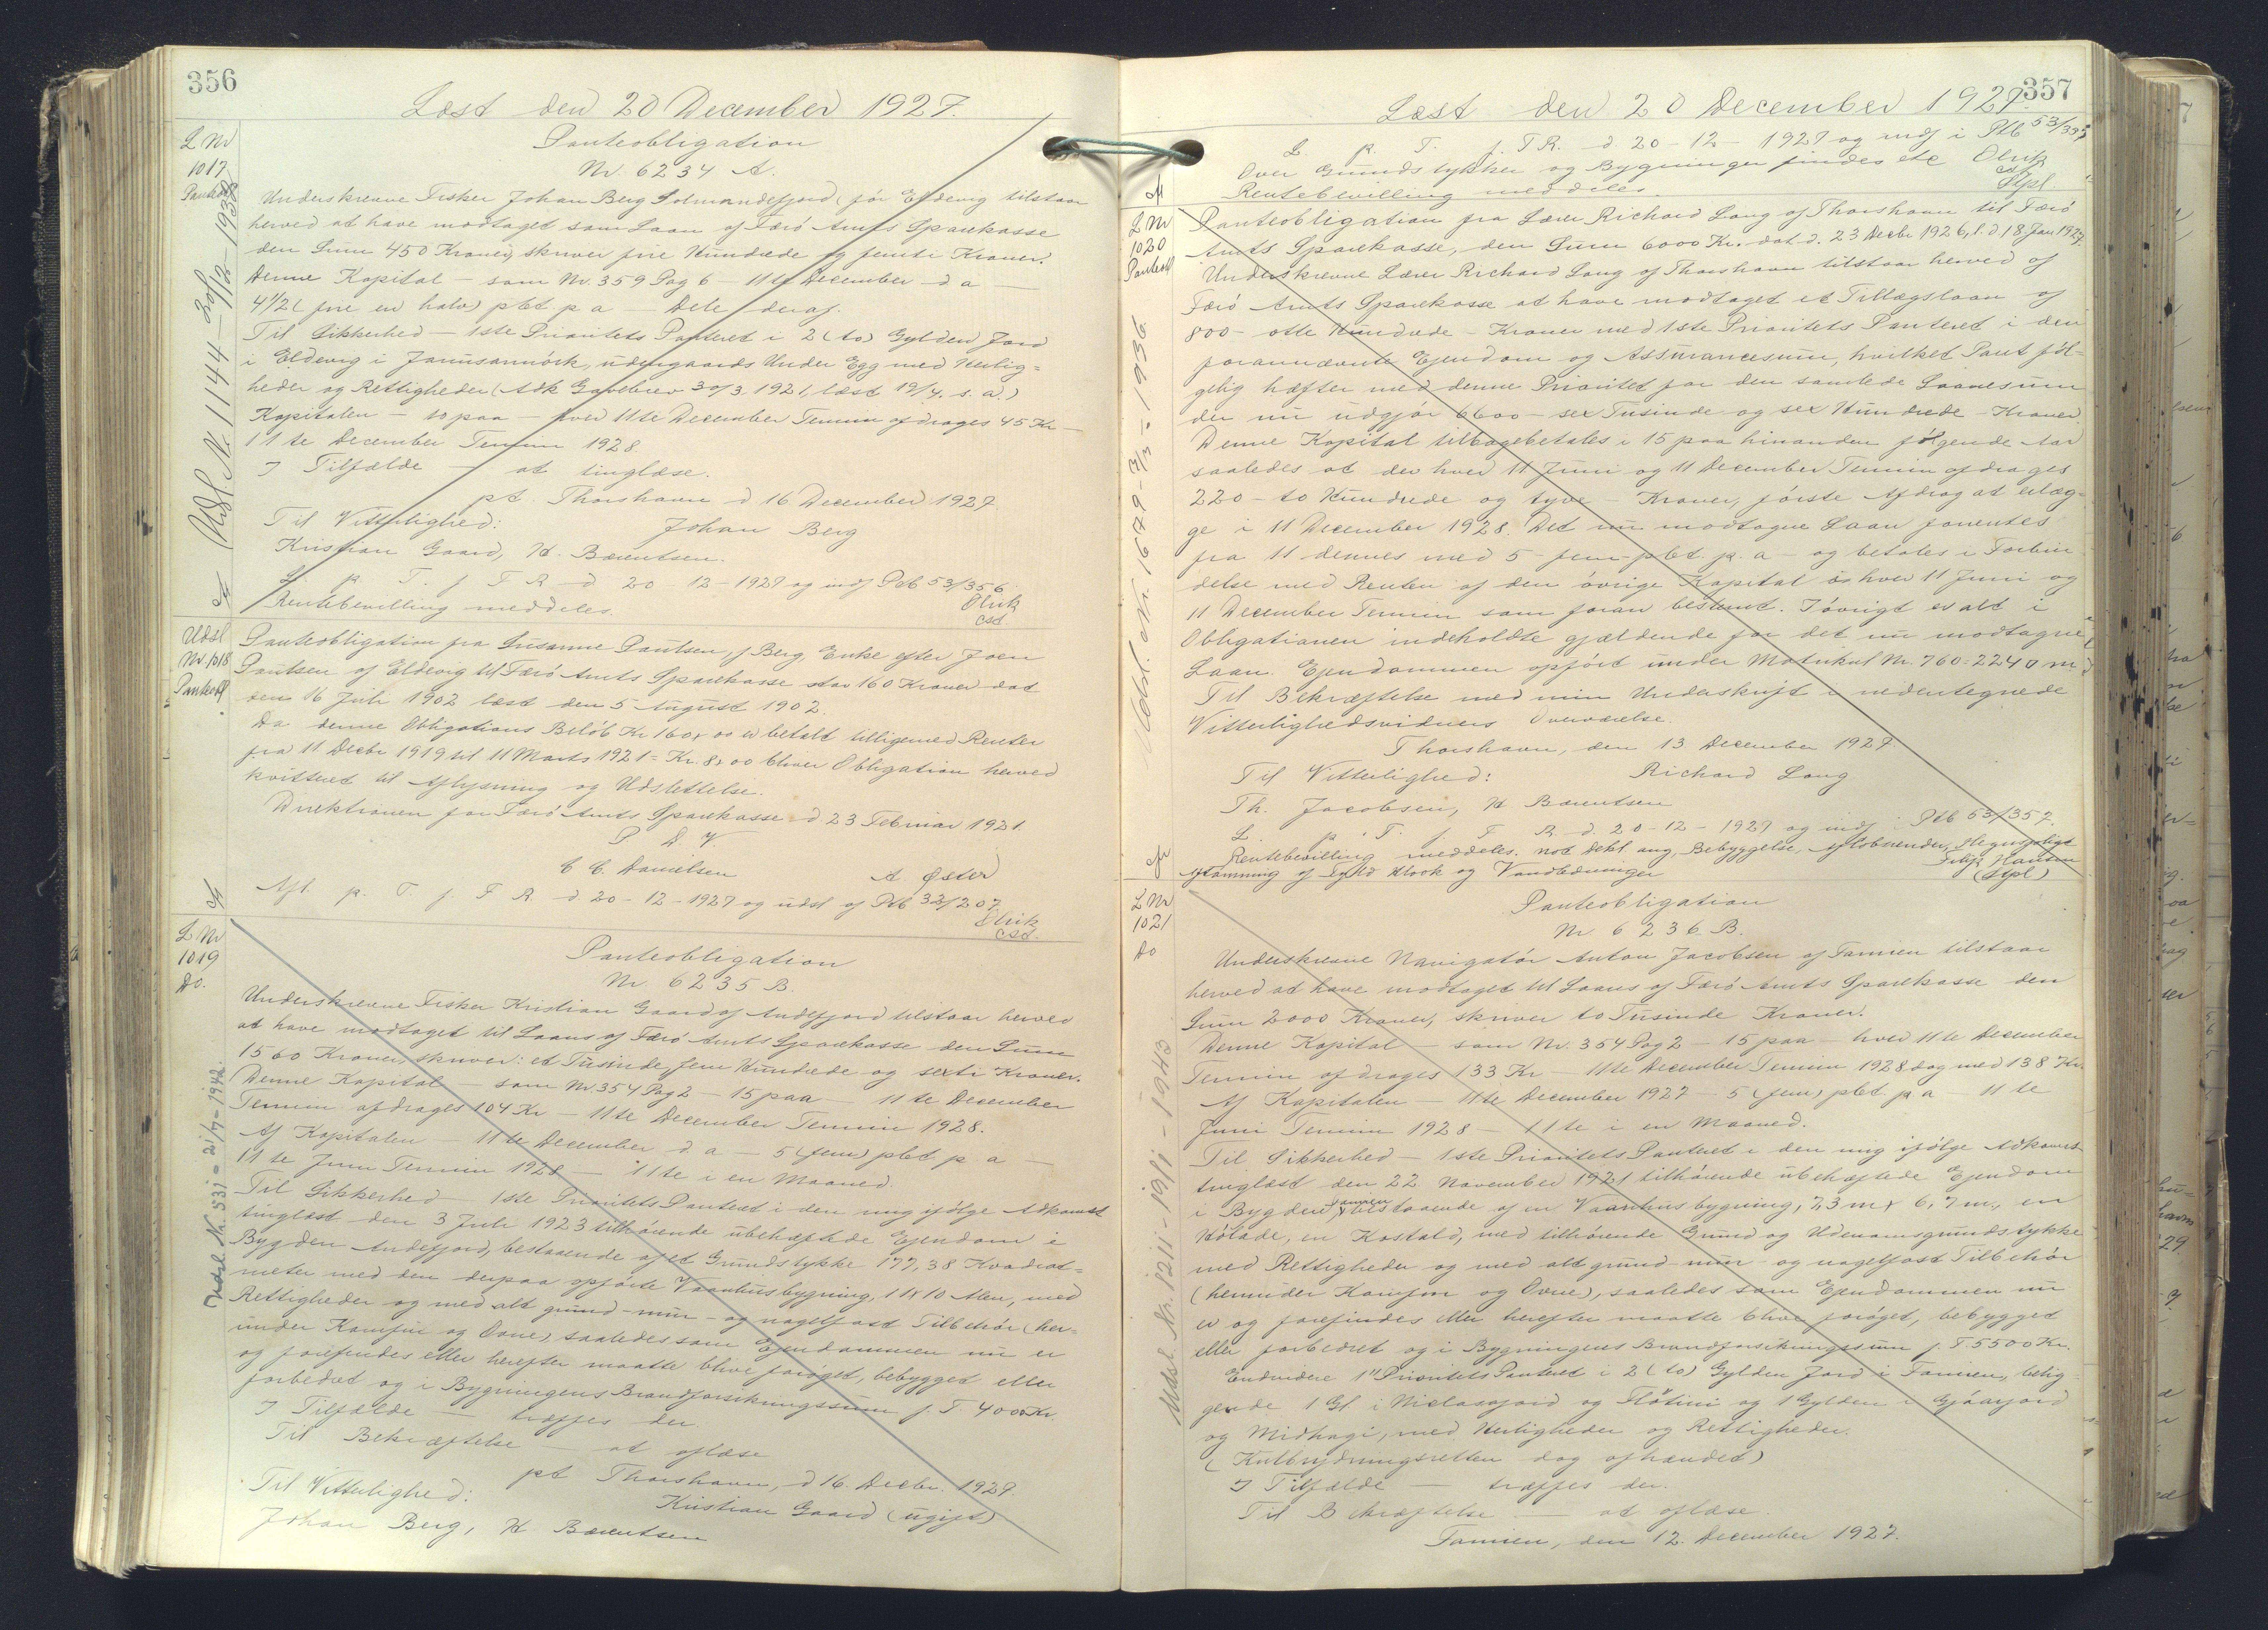 356
Læst den 20 December 1927.
L Nr
1017
Panteobl
Udsl. Nr. 1144 - 30/12 - 1938
Panteobligation
Nr. 6234 A.
Underskrevne Fisker Johan Berg Solmundefjord, før Eldevig tilstaar
herved at have modtaget som Laan af Færø Amts Sparekasse
den Sum 450 Kroner, skriver fire Hundrede og femti Kroner.
Denne Kapital - som Nr. 359 Pag 6 - 11te December d a -
4 1/2 (fire en halv) pCt p a - Dele deraf.
Til Sikkerhed - 1ste Prioritets Panteret i 2 (to) Gylden Jord
i Eldevig i Jarnsanmörk, udengaards Under Egg med Herlig=
heder og Rettigheder (Adk Gavebrev 30/3 1921, læst 19/4. s. a.)
Kapitalen - 10 paa - hver 11te December Termin afdrages 45 Kr -
11te December Termin 1928.
I Tilfælde - at tinglæse.
pt. Thorshavn d 16 December 1927
Til Vitterlighed: Johan Berg
Kristian Gaard, H. Bærentsen.
L. p. T. f. F R d 20-12-1927 og indf Ptb 53/356
Rentebevilling meddeles. Olrik
csd.
Udsl
Nr. 1018
Panteobl
Panteobligation fra Susanne Poulsen, f Berg, Enke efter Joen
Poulsen af Eldevig til Færø Amts Sparekasse stor 160 Kroner dat
den 16 Juli 1902 læst den 5 August 1902.
Da denne Obligations Beløb Kr 160,00 er betalt tilligemed Renter
fra 11 Decbr 1919 til 11 Marts 1921 = Kr. 8,00 bliver Obligation herved
kvitteret til Aflysning og Udslettelse.
Direktionen for Færø Amts Sparekasse d 23 Februar 1921.
P D V
C C. Danielsen A. Øster
Afl. p. T. f. F R. d 20-12-1927 og udsl af Ptb 32/207
Olrik
csd.
L Nr
1019
Do.
Udsl. Nr. 531 - 21/7 - 1942.
Panteobligation
Nr 6235 B.
Underskrevne Fisker Kristian Gaard af Andefjord tilstaar herved
at have modtaget til Laans af Færø Amts Sparekasse den Sum
1560 Kroner, skriver: et Tusinde, fem Hundrede og sexti Kroner.
Denne Kapital - som Nr 354 Pag 2 - 15 paa - 11te December
Termin afdrages 104 Kr - 11te December Termin 1928.
Af Kapitalen - 11te December d. a - 5 (fem) pCt p. a -
11te Juni Termin 1928 - 11te i en Maaned.
Til Sikkerhed - 1ste Prioritets Panteret i den mig ifølge Adkomst
tinglæst den 3 Juli 1923 tilhørende ubehæftede Ejendom i
Bygden Andefjord, bestaaende af et Grundstykke 177,38 Kvadrat=
meter med den derpaa opførte Vaanhusbygning, 11 x 10 Alen, med
Rettigheder og med alt grund- mur- og nagelfast Tilbehør (her=
under Komfur og Ovne), saaledes som Ejendommen nu er
og forefindes eller herefter maatte blive forøget, bebygget eller
forbedret og i Bygningens Brandforsikringssum f. T. 4000 Kr.
I Tilfælde - træffes der.
Til Bekræftelse - at aflæse
pt Thorshavn, d 16 Decbr. 1927.
Til Vitterlighed: Kristian Gaard (ugift)
Johan Berg, H Bærentsen
357
Læst den 20 December 1927.
L. p. T. f. F R. d 20-12-1927 og indf i Ptb 53/357
Over Grundstykker og Bygninger findes etc Olrik
csd
Rentebevilling meddeles. Stpl.
L Nr
1020
Panteobl
Udsl. Nr. 1649 - 3/3 - 1936
Panteobligation fra Lærer Richard Long af Thorshavn til Færø
Amts Sparekasse, den Sum 6000 Kr. dat d. 23 Decbr 1926, l. d. 18 Jan 1927.
Underskrevne Lærer Richard Long af Thorshavn tilstaar herved af
Færø Amts Sparekasse at have modtaget et Tillægslaan af
800 - otte Hundrede - Kroner med 1ste Prioritets Panteret i den
forannævnte Ejendom og Assurancesum, hvilket Pant føl=
gelig hæfter med denne Prioritet for den samlede Laanesum
der nu udgjør 6600 - sex Tusinde og sex Hundrede - Kroner.
Denne Kapital tilbagebetales i 15 paa hinanden følgende Aar
saaledes at der hver 11 Juni og 11 December Termin afdrages
220 - to Hundrede og tyve Kroner, første Afdrag at erlæg=
ge i 11 December 1928. Det nu modtagne Laan forrentes
fra 11 dennes med 5 - fem - pCt. p. a - og betales i Forbin
delse med Renten af den øvrige Kapital hver 11 Juni og
11 December Termin som foran bestemt. I øvrigt er alt i
Obligationen indeholdte gjældende for det nu modtagne
Laan. Ejendommen opført under Matrikul Nr. 760 = 2240 m²
Til Bekræftelse med min Underskrift i nedentegnede
Vitterlighedsvidners Overværelse.
Thorshavn, den 13 December 1927.
Til Vitterlighed: Richard Long
Th. Jacobsen, H Bærentsen
L. p. T. f. F R. d. 20-12-1927 og indf i Ptb 53/357.
Rentebevilling meddeles. not Dekl. ang, Bebyggelse, Afløbsrender, Hegnspligt
og Vandledninger Hansen
(Stpl)
L Nr
1021
Do
Udsl. Nr. 1211 - 19/1 - 1943
Panteobligation
Nr 6236. B.
Underskrevne Navigatør Anton Jacobsen af Famien tilstaar
herved at have modtaget til Laans af Færø Amts Sparekasse den
Sum 2000 Kroner, skriver to Tusinde Kroner.
Denne Kapital - som Nr. 354 Pag 2 - 15 paa - hver 11te December
Termin afdrages 133 Kr - 11te December Termin 1928 dog med 138 Kr.
Af Kapitalen - 11te December 1927 - 5 (fem) pCt. p a - 11te
Juni Termin 1928 - 11te i en Maaned.
Til Sikkerhed - 1ste Prioritets Panteret i den mig ifølge Adkomst
tinglæst den 22 November 1921 tilhørende ubehæftede Ejendom
i Bygden Famien bestaaende af en Vaanhusbygning, 7,3 m x 6,7 m, en
Hølade, en Kostald, med tilhørende Grund og Udenomsgrundstykke
med Rettigheder og med alt grund- mur- og nagelfast Tilbehør
(herunder Komfur og Ovne), saaledes som Ejendommen nu
er og forefindes eller herefter maatte blive forøget, bebygget
eller forbedret og i Bygningens Brandforsikringssum f. T. 5500 Kr.
Endvidere 1" Prioritets Panteret i 2 (to) Gylden Jord i Famien, belig=
gende 1 Gl i Niclasajord og Fløtini og 1 Gylden i Gjáarjord
og Midhagi, med Herligheder og Rettigheder.
(Kulbrydningsretten dog afhændet)
I Tilfælde - træffes der.
Til Bekræftelse - at aflæse.
Famien, den 12. December 1927.